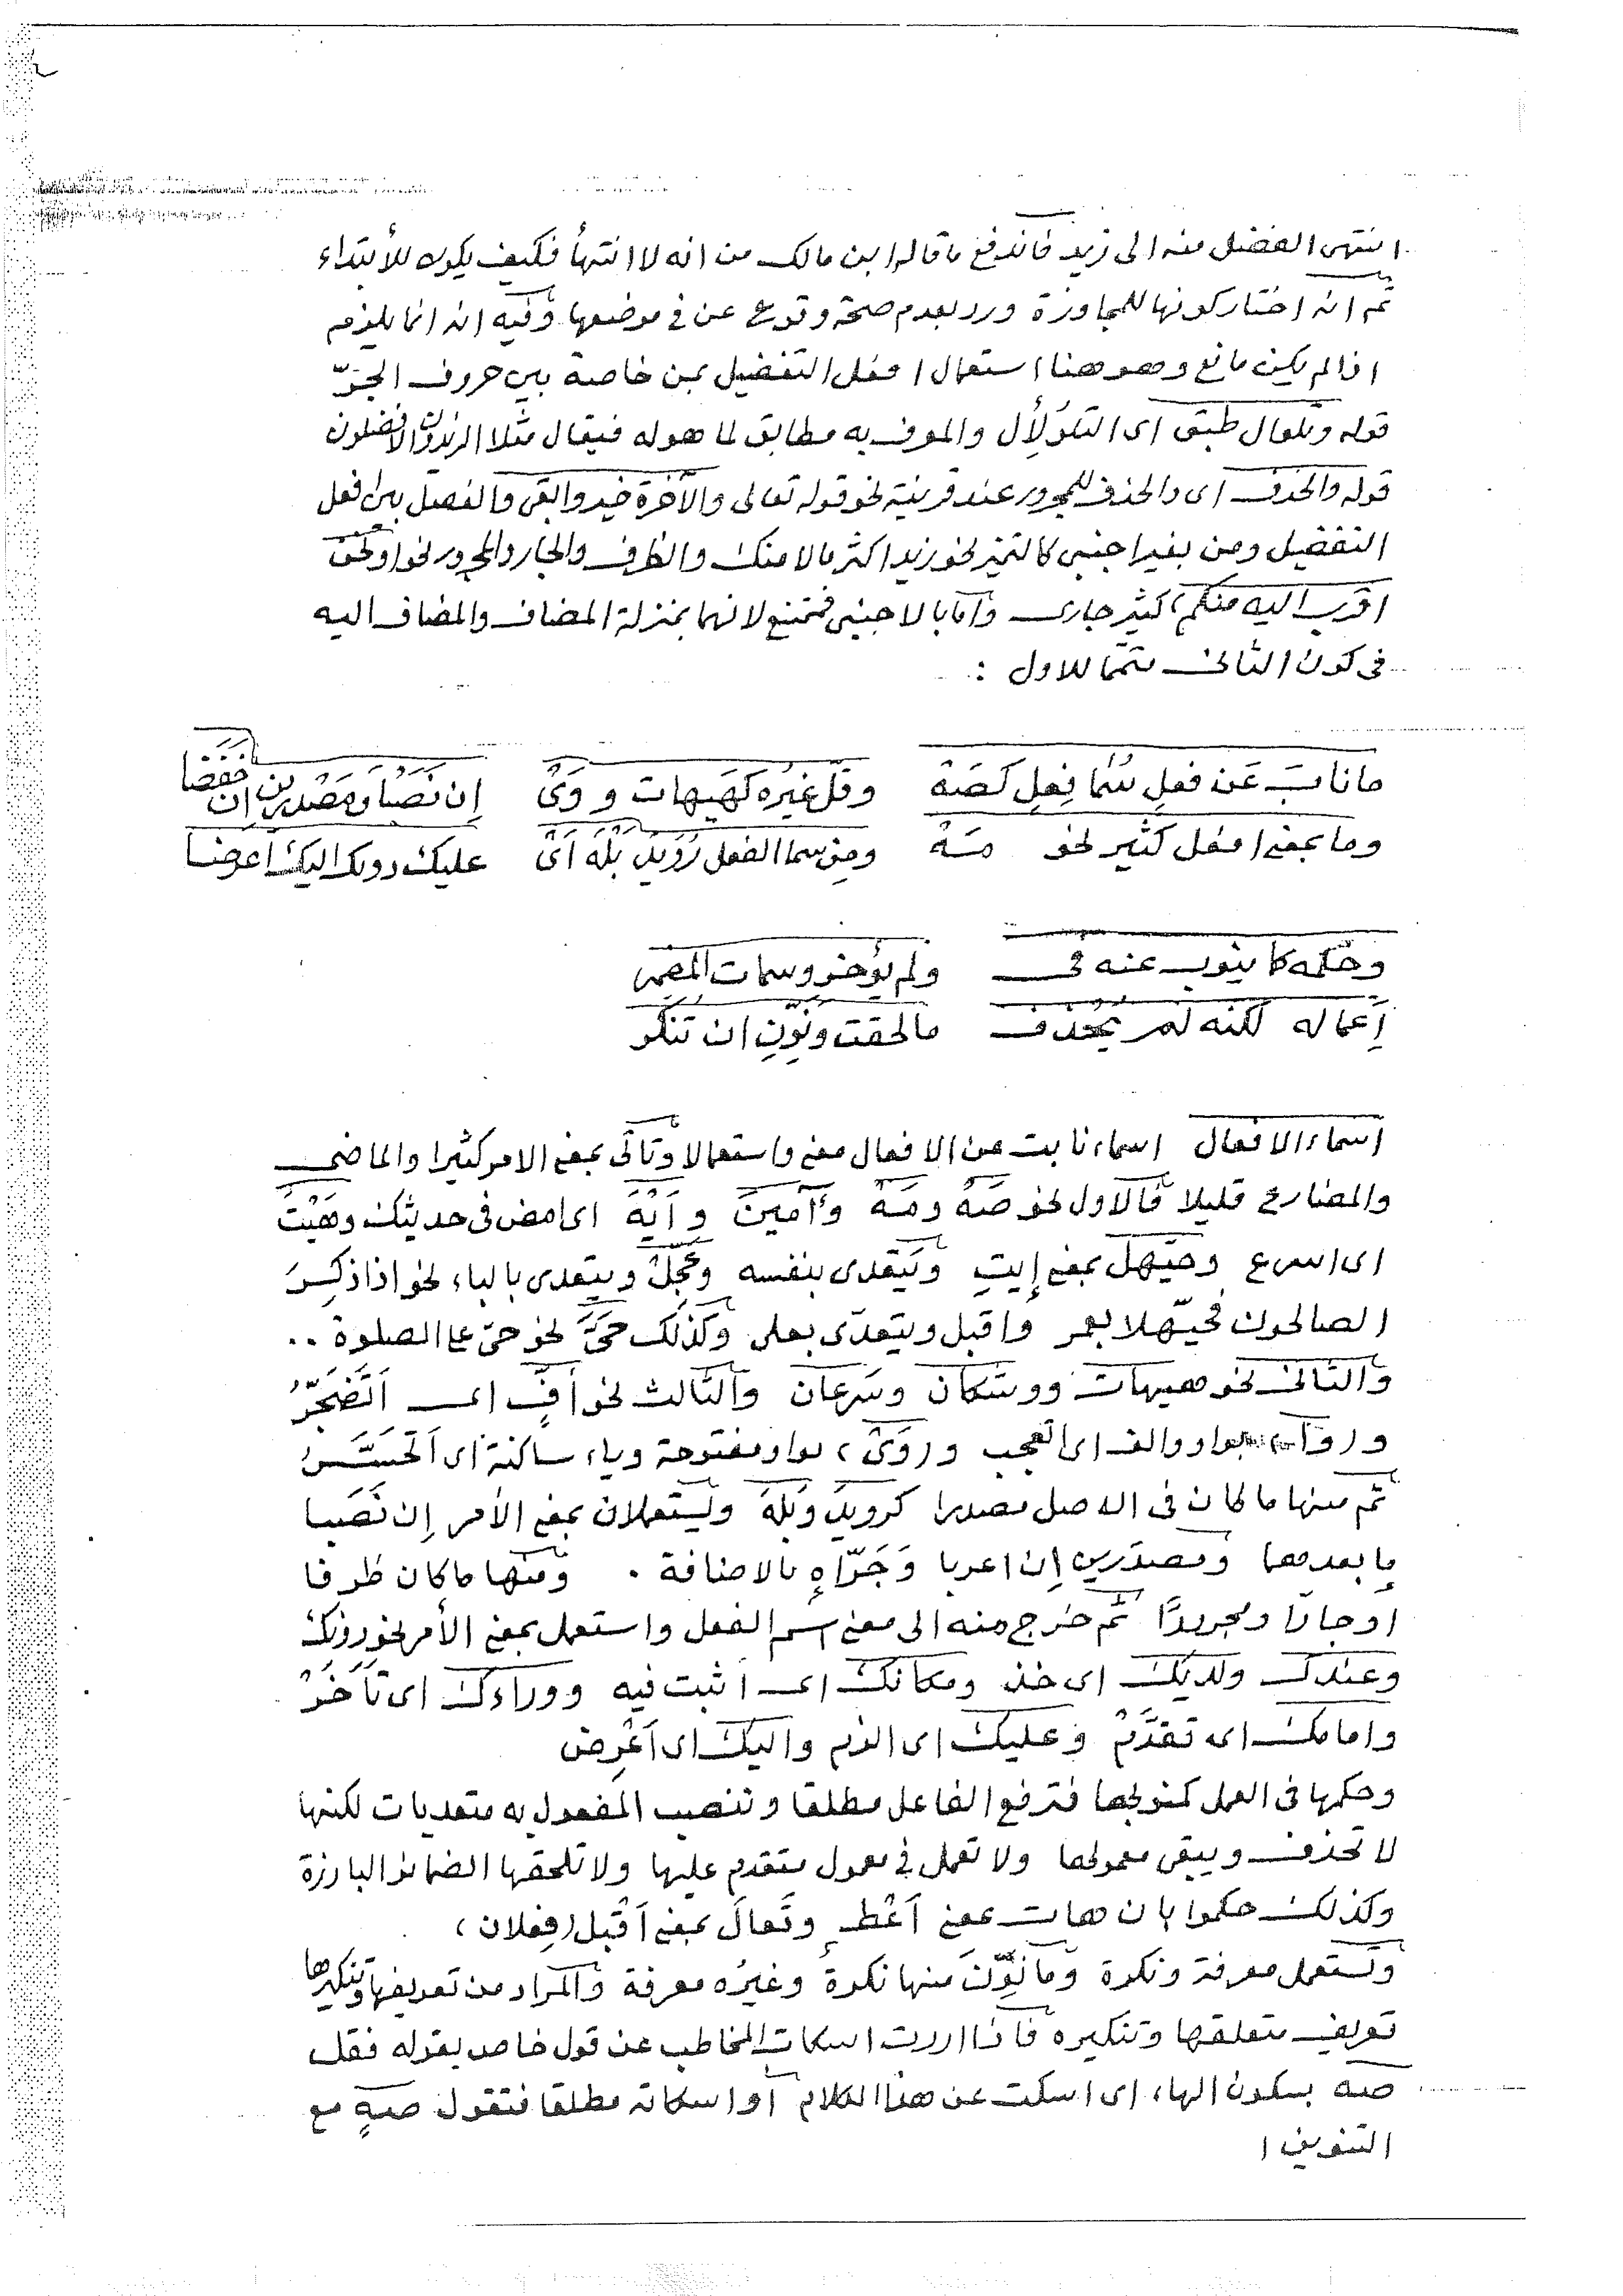 انتهى الفضل منه الى زيد فاندفع ما قاله ابن مالك من انه لا انتهأ فكيف يكون للأبتداء
ثم انه اختار كونها للمجاوزة ورد بعدم صحة وقوع عن فى موضعها وفيه انه انما يلزم
اذا لم يكن مانع وهو هنا استعمال افعل التفضيل بمن خاصة بين حروف الجرّ
قوله وتلو ال طبق اى التلو لأل والمعرف به مطابق لما هو له فيقال مثلا الزيدون الافضلون
قوله والحذف اى والحذف للمجرور عند قرينة نحو قوله تعالى والآخرة خير وابقى والفصل بين افعل
التفضيل ومن بغير اجنبى كالتميز نحو زيد اكثر مالا منك والظرف والجار والمجرور نحو او نحن
اقرب اليه منكم، كثير جارى وأما بالاجنبى فممتنع لانهما بمنزلة المضاف والمضاف اليه
فى كون الثانى متمّا للاول :
ما نابَ عَن فعلٍ سُما فِعلٍ كَصَهْ وقلّ غيرُه كهَيهات و وَىْ إن نَصَبا ومَصْدرين إن خَفَضَا
وما بمعنى افعل كثير نحو مَهْ ومِن سما الفعل رُوَيدَ بَلْهَ اَىْ عليك دونك اليك اَعرضا
وحكمه كما ينوب عنه فى ولم يؤخر وسمات المضمر
اَعماله لكنّه لم يُحْذف ما لحقت ونُوّنِ ان تُنكر
اسماء الافعال اسماء نابت عن الافعال معنى واستعمالا وتأتى بمعنى الامر كثيرا والماضى
والمضارع قليلا فالاول نحو صَهْ ومَهْ وآمينَ و اَيْهَ اى امض فى حديثك وهَيْتَ
اى اسرع وحيّهل بمعنى إيتِ ويَتَعدى بنفسه وعَجِّلْ ويتعدى بالباء نحو اذا ذكِرَ
الصالحون فحيّهلا بعمر واقبل ويتعدّى بعلى وكَذلك حَىَّ نحو حىّ على الصلوة ..
والثانى نحو هيهات ووشكان وسَرعان والثالث نحو اُفٍّ اى اَتَضَجّرُ
و(وا) بواو والف اى اتعجب و(وَىْ) بواو مفتوحة وياء ساكنة اى اَتَحَسَّرُ
ثم منها ما كان فى الاصل مصدرا كرويدَ وبَلْهَ ويُستعملان بمعنى الأمر إن نَصَبا
ما بعدهما ومصدَرين إن اعربا وَجَرّاه بالاضافة . ومنها ما كان ظرفا
او جارّا ومجرورًا ثم خرج منه الى معنى اسم الفعل واستعمل بمعنى الأمر نحو دونك
وعندك ولديك اى خذ ومكانك اى اثبت فيه ووراءك اى تَأَخَّرْ
وامامك اى تقدَّمْ وعليك اى الزم واليك اى اَعْرِض
وحكمها فى العمل كمنوبها فترفع الفاعل مطلقا وتنصب المفعول به متعديات لكنها
لا تحذف ويبقى معمولها ولا تعمل فى معمول متقدم عليها ولا تلحقها الضمائر البارزة
وكذلك حكموا بان هات بمعنى اَعْطِ وتَعالَ بمعنى اَقْبل (فِعلان)
وتستعمل معرفة ونكرة وما نُوِّنَ منها نكرةٌ وغيرُه معرفة والمراد من تعريفها وتنكيرها
تعريف متعلقها وتنكيره فاذا اردت اسكات المخاطب عن قول خاص بقوله فقل
صه بسكون الهاء اى اسكت عن هذا الكلام أو اسكاته مطلقا فتقول صهٍ مع
التنوين